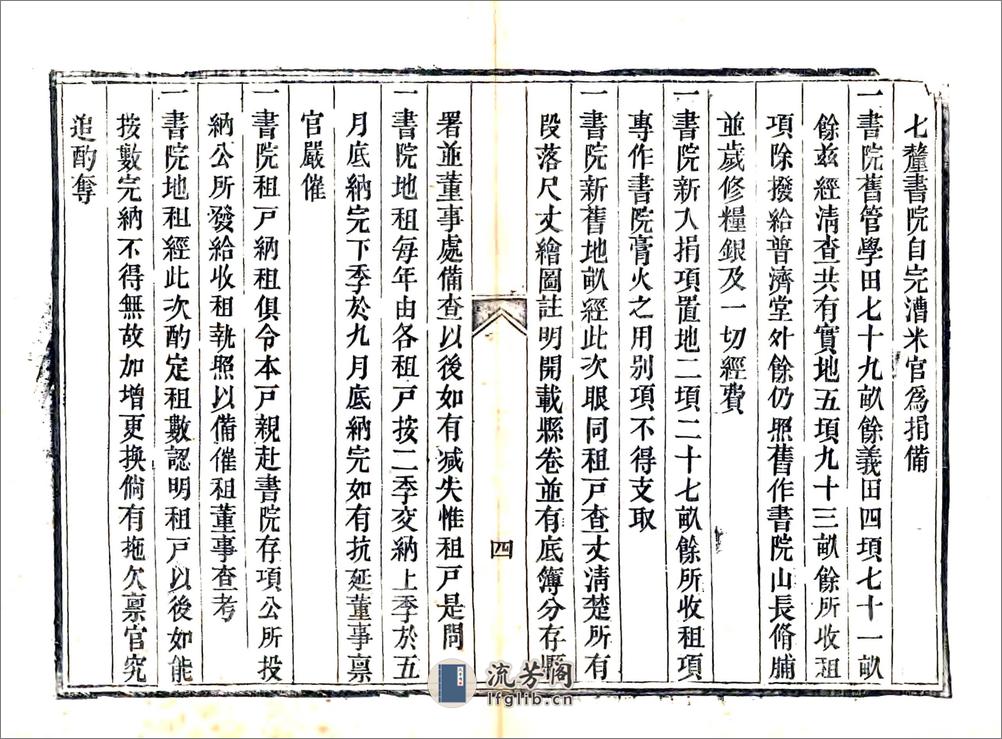 七釐書院自完漕米官爲捐備
一書院舊管學田七十九畝餘義田四項七十一畝
餘兹經清查共有實地五項九十三畝餘所收租
項除撥給普濟堂外餘仍照舊作書院山長脩脯
並歲修糧銀及一切經費
一書院新入捐項置地二項二十七畝餘所收租項
專作書院膏火之用別項不得支取
一書院新舊地畝經此次眼同租戸查丈清楚所有
段落尺丈繪圖註明開載縣卷並有底簿分存縣
四
署並董事處備查以後如有減失惟租戸是問
一書院地租每年由各租戸按二季交納上季於五
月底納完下季於九月底納完如有抗延董事禀
官嚴催
一書院租戸納租俱令本戸親赴書院存項公所投
納公所發給收租執照以備催租董事查考
一書院地租經此次酌定租數認明租戸以後如能
按數完納不得無故加增更换倘有拖欠禀官究
追酌奪
流芳阁
lfglib.cn